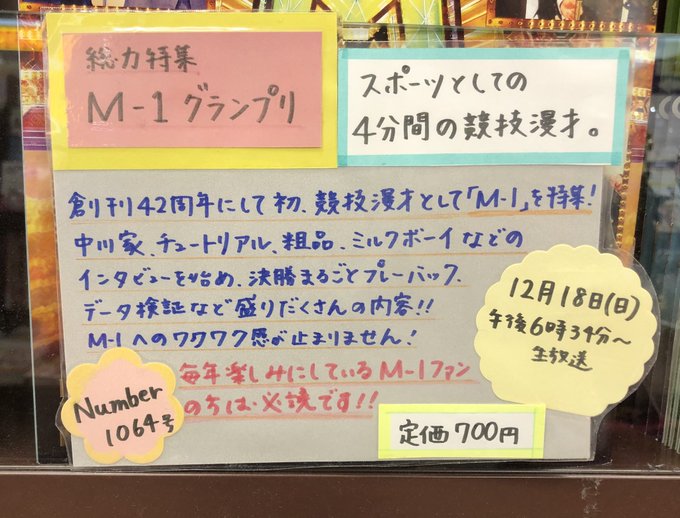 総力特集
M-1 グランプリ
スポーツとしての
4分間の競技漫才。
創刊42周年にして初、競技漫才として「M-1」を特集!
中川家、チュートリアル、粗品、ミルクボーイなどの
インタビューを始め、決勝まるごとプレーバック、
データ検証など盛りだくさんの内容!!
M-1へのワクワク感が止まりません!
毎年楽しみにしているM-1ファン
のちは必読です!!
12月18日(日)
午後6時34分〜
生放送
Number
1064号
定価700円